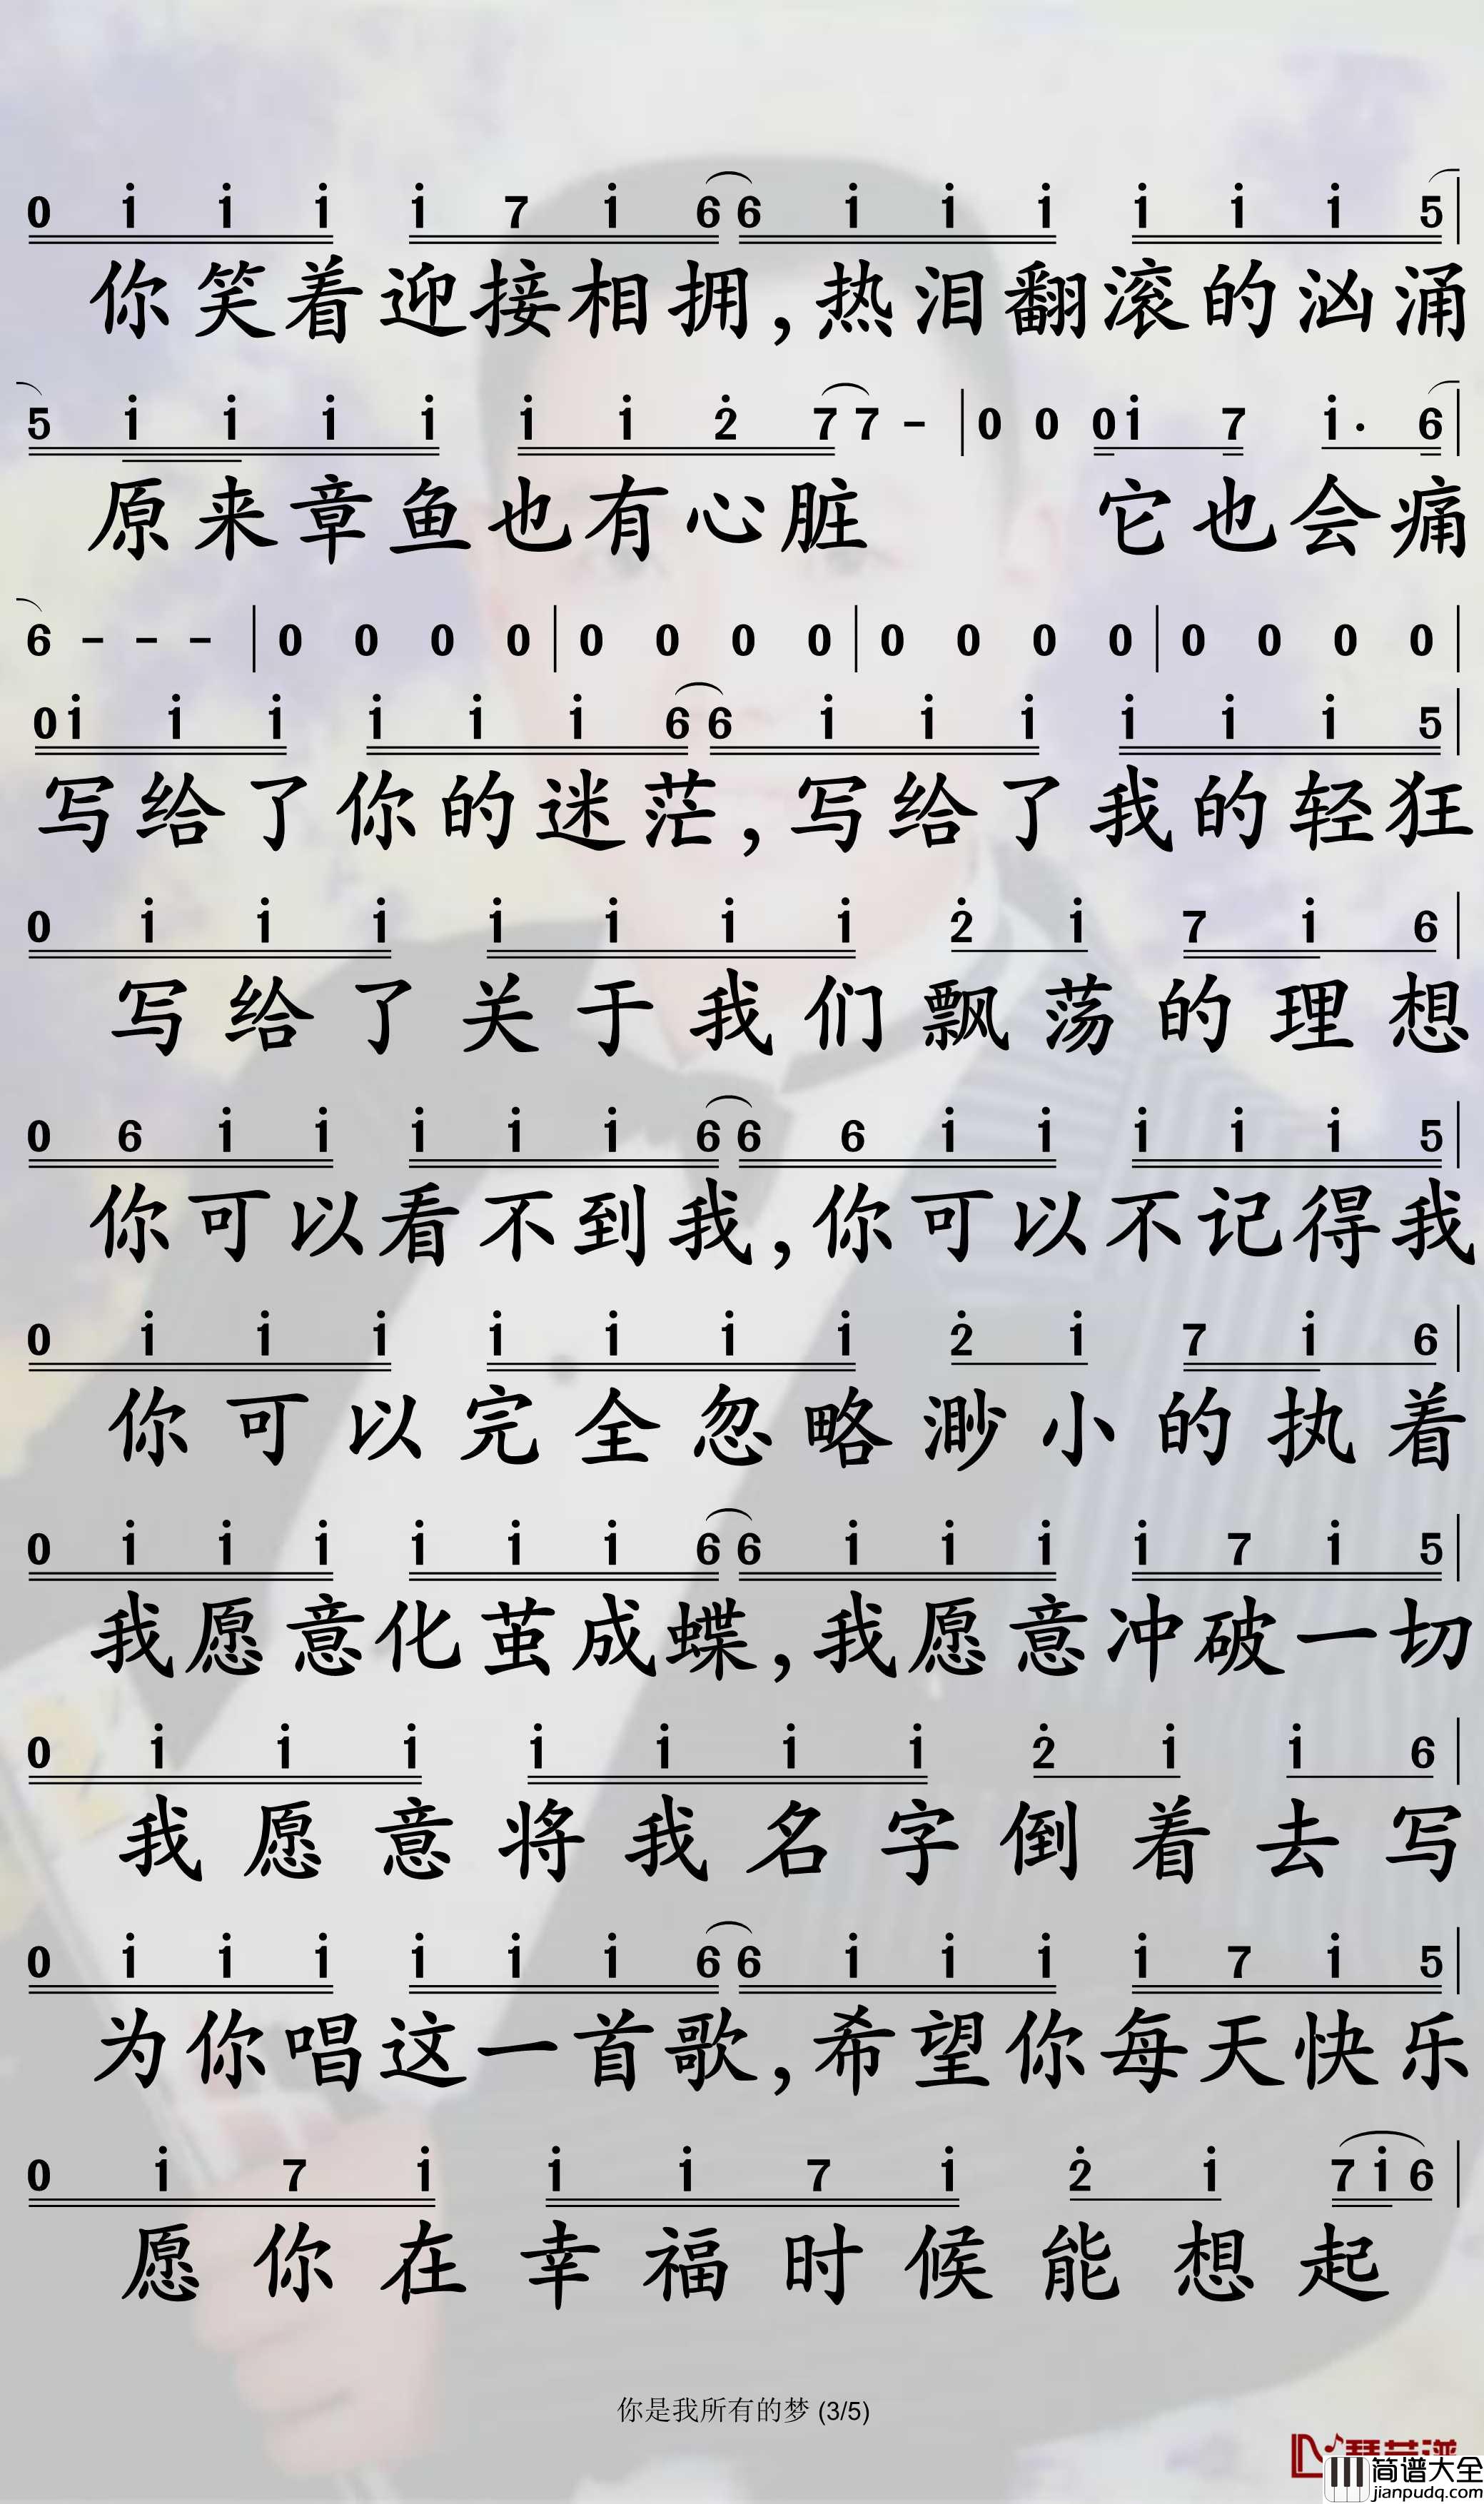 0 i i i i 7 i 6 6 i i i i i i 5
你笑着迎接相拥,热泪翻滚的汹涌
5 i i i i i i 2̇ 7 7 - | 0 0 0 i 7 i· 6
原来章鱼也有心脏 它也会痛
6 - - - | 0 0 0 0 | 0 0 0 0 | 0 0 0 0 | 0 0 0 0 |
0 i i i i i i 6 6 i i i i i i 5
写给了你的迷茫,写给了我的轻狂
0 i i i i i i i 2̇ i 7 i 6
写给了关于我们飘荡的理想
0 6 i i i i i 6 6 6 i i i i i 5
你可以看不到我,你可以不记得我
0 i i i i i i i 2̇ i 7 i 6
你可以完全忽略渺小的执着
0 i i i i i i 6 6 i i i i 7 i 5
我愿意化茧成蝶,我愿意冲破一切
0 i i i i i i i 2̇ i i 6
我愿意将我名字倒着去写
0 i i i i i i 6 6 i i i i 7 i 5
为你唱这一首歌,希望你每天快乐
0 i 7 i i i 7 i 2̇ i 7 i 6
愿你在幸福时候能想起
你是我所有的梦 (3/5)
简谱大全
jianpudq.com